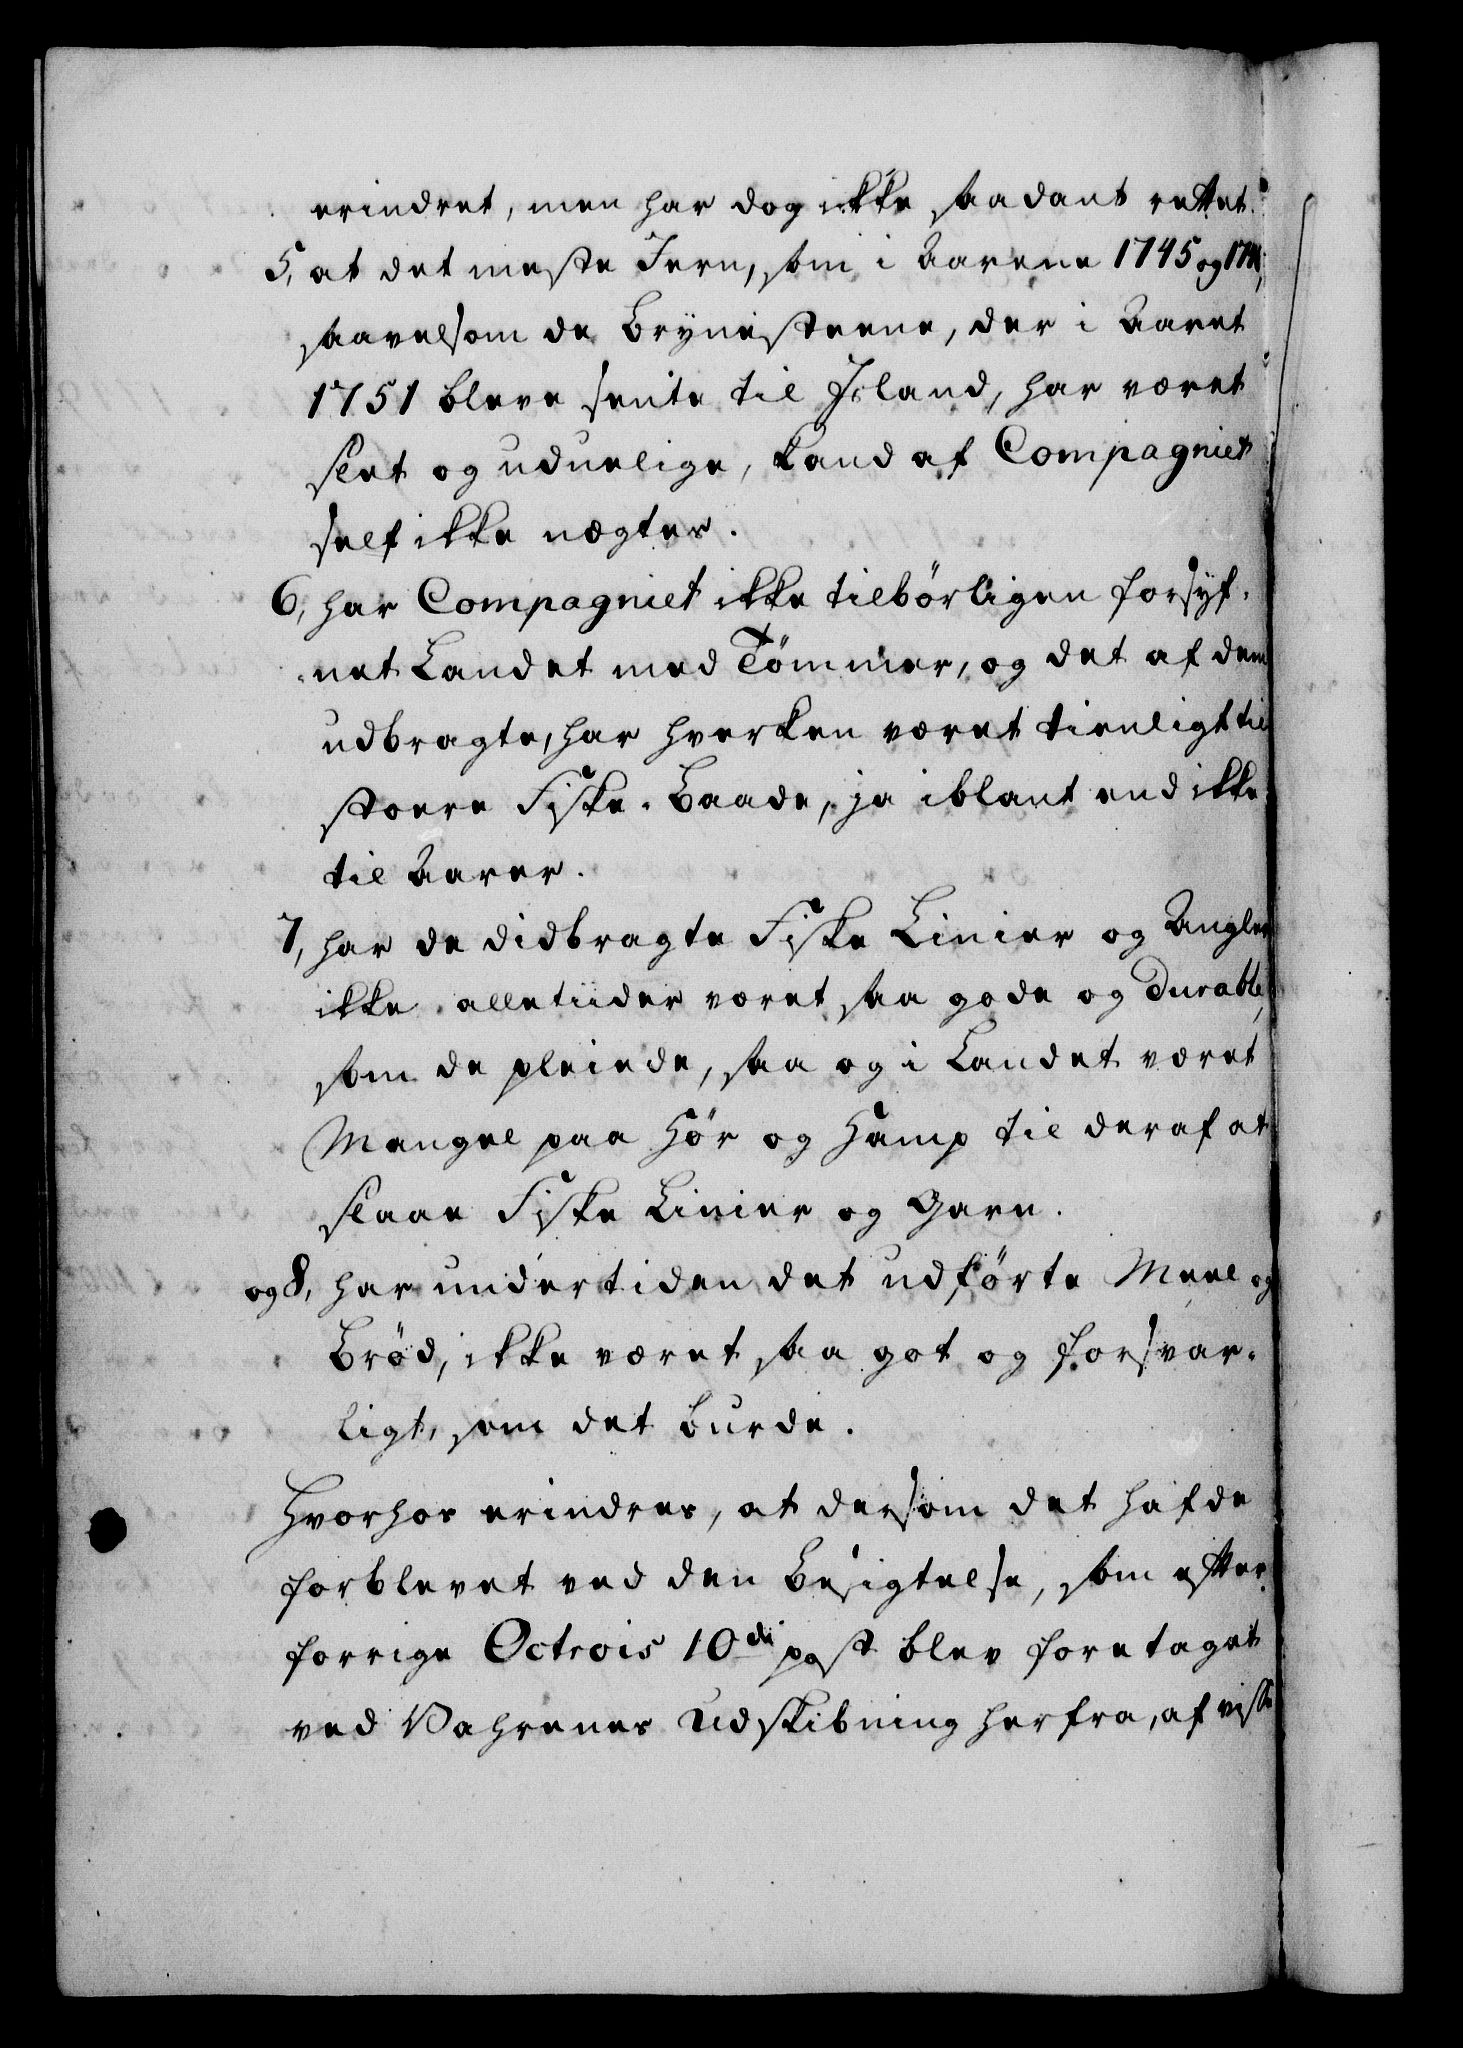 erindret, men har dog ikke saadant rettet.
5, at det meste Jern, som i Aarene 1745 og
saavelsom de Brynesteene, der i Aaret
1751 bleve sente til Island, har været
slet og uduelige, kand af Compagniet
self ikke nægtes.
6, har Compagniet ikke tilbørligen forsyf-
net Landet med Tömmer, og det af dem
udbragte, har hverken været tienligt til
stoere Fiske-Baade, ja iblant end ikke
til Aarer.
7, har de didbragte Fiske Linier og Angler
ikke alletiider været saa gode og durable,
som de pleiede, saa og i Landet været
Mangel paa Hör og Hamp til deraf at
slaae Fiske Linier og Garn.
og 8, har undertiden det udførte Meel og
Brød, ikke været saa got og forsvar-
ligt, som det burde.
Hvorhos erindres, at dersom det hafde
forblevet ved den Besigtelse, som efter
forrige Octrois 10de post blev foretaget
ved Vahrenes Udskibning herfra, af visse